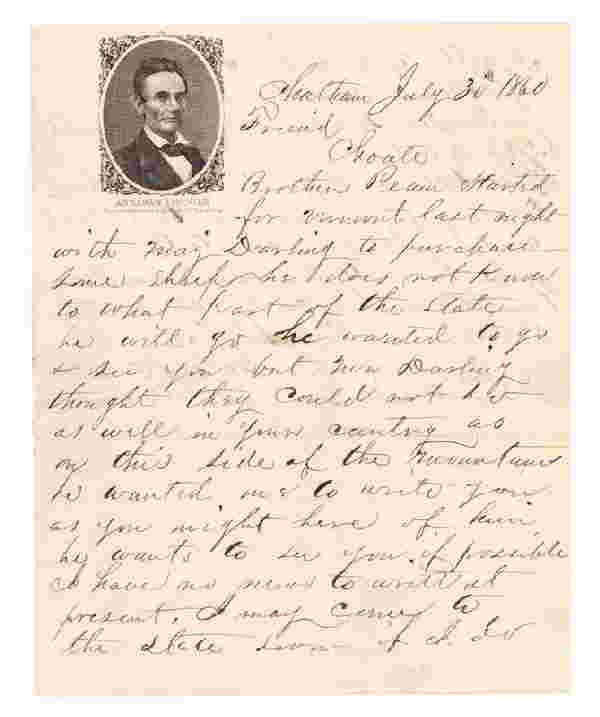 ABRAHAM LINCOLN
Chatham July 30th 1860
Friend
Choate
Brother Started
for Vermont last night
with Maj Darling to purchase
some sheep he does not know
to what Part of the state
he will go he wanted to go
& see you but Mr Darling
thought they could not do
as well in your country as
on this side of the mountains
he wanted me to write you
as you might here of him
he wants to see you if possible
I have no news to write at
present. I may come to
the state soon if I do